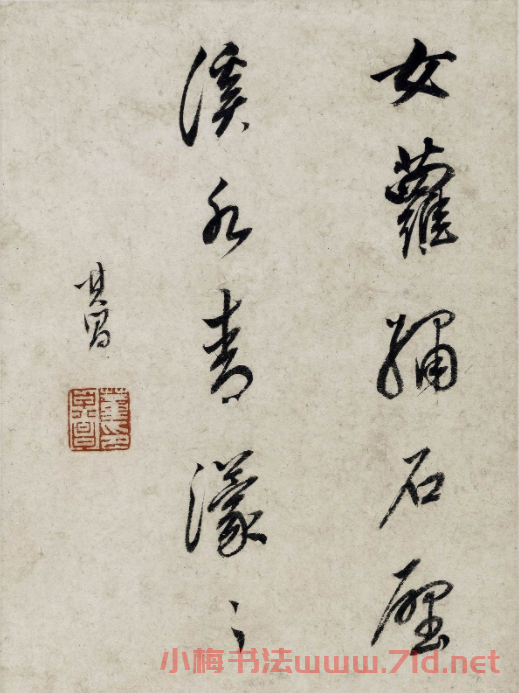 女蘿繡石壁
溪水青濛〻
其昌
董其昌印
小梅书法www.71d.net